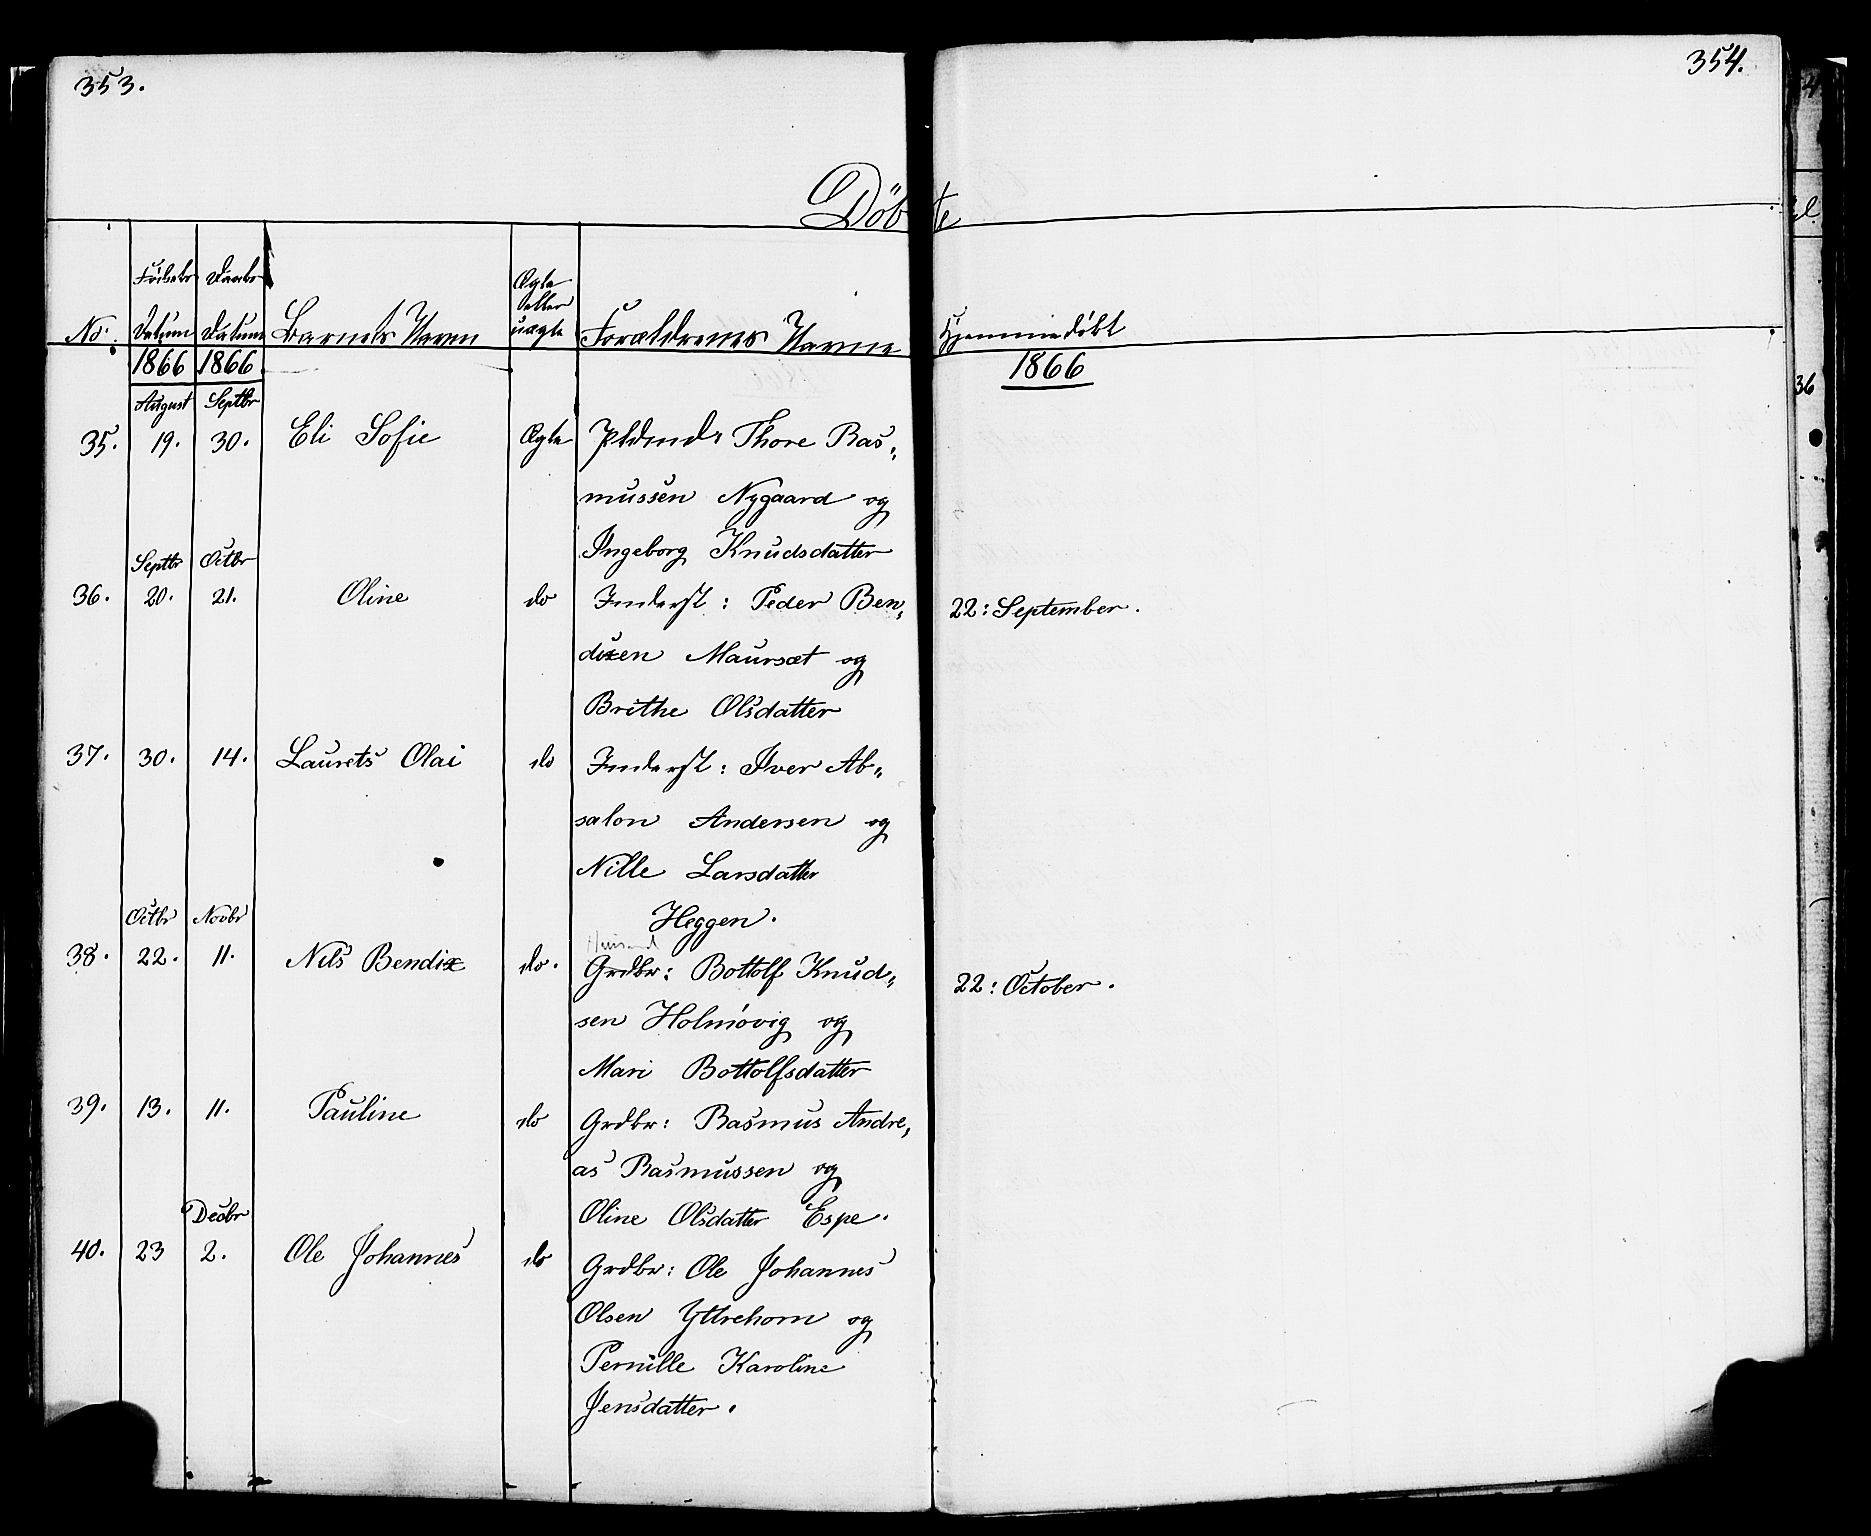 353.
354.
Döbte
Fødsels Daabs
Ægte
eller
No: Datum Datum Barnets Navn uægte Forældrenes Navne Hjemmedöbt
1866 1866 1866
August Septbr
35. 19. 30. Eli Sofie Ægte Thore Ras„
mussen Nygaard og
Ingeborg Knudsdatter
Septbr Octbr
36. 20. 21. Oline do Inderst: Peder Ben„ 22: September.
dixen Maursæt og
Brithe Olsdatter
37. 30. 14. Laurets Olai do Inderst: Iver Ab„
salon Andersen og
Nille Larsdatter
Heggen.
Octbr Novbr
38. 22. 11. Nils Bendix do. Grdbr: Bottolf Knud„ 22: October.
sen Holmövig og
Mari Bottolfsdatter
39. 13. 11. Pauline do Grdbr: Rasmus Andre„
as Rasmussen og
Oline Olsdatter Espe.
Decbr
40. 23 2. Ole Johannes do Grdbr: Ole Johannes
Olsen Yttrehorn og
Pernille Karoline
Jensdatter.
36